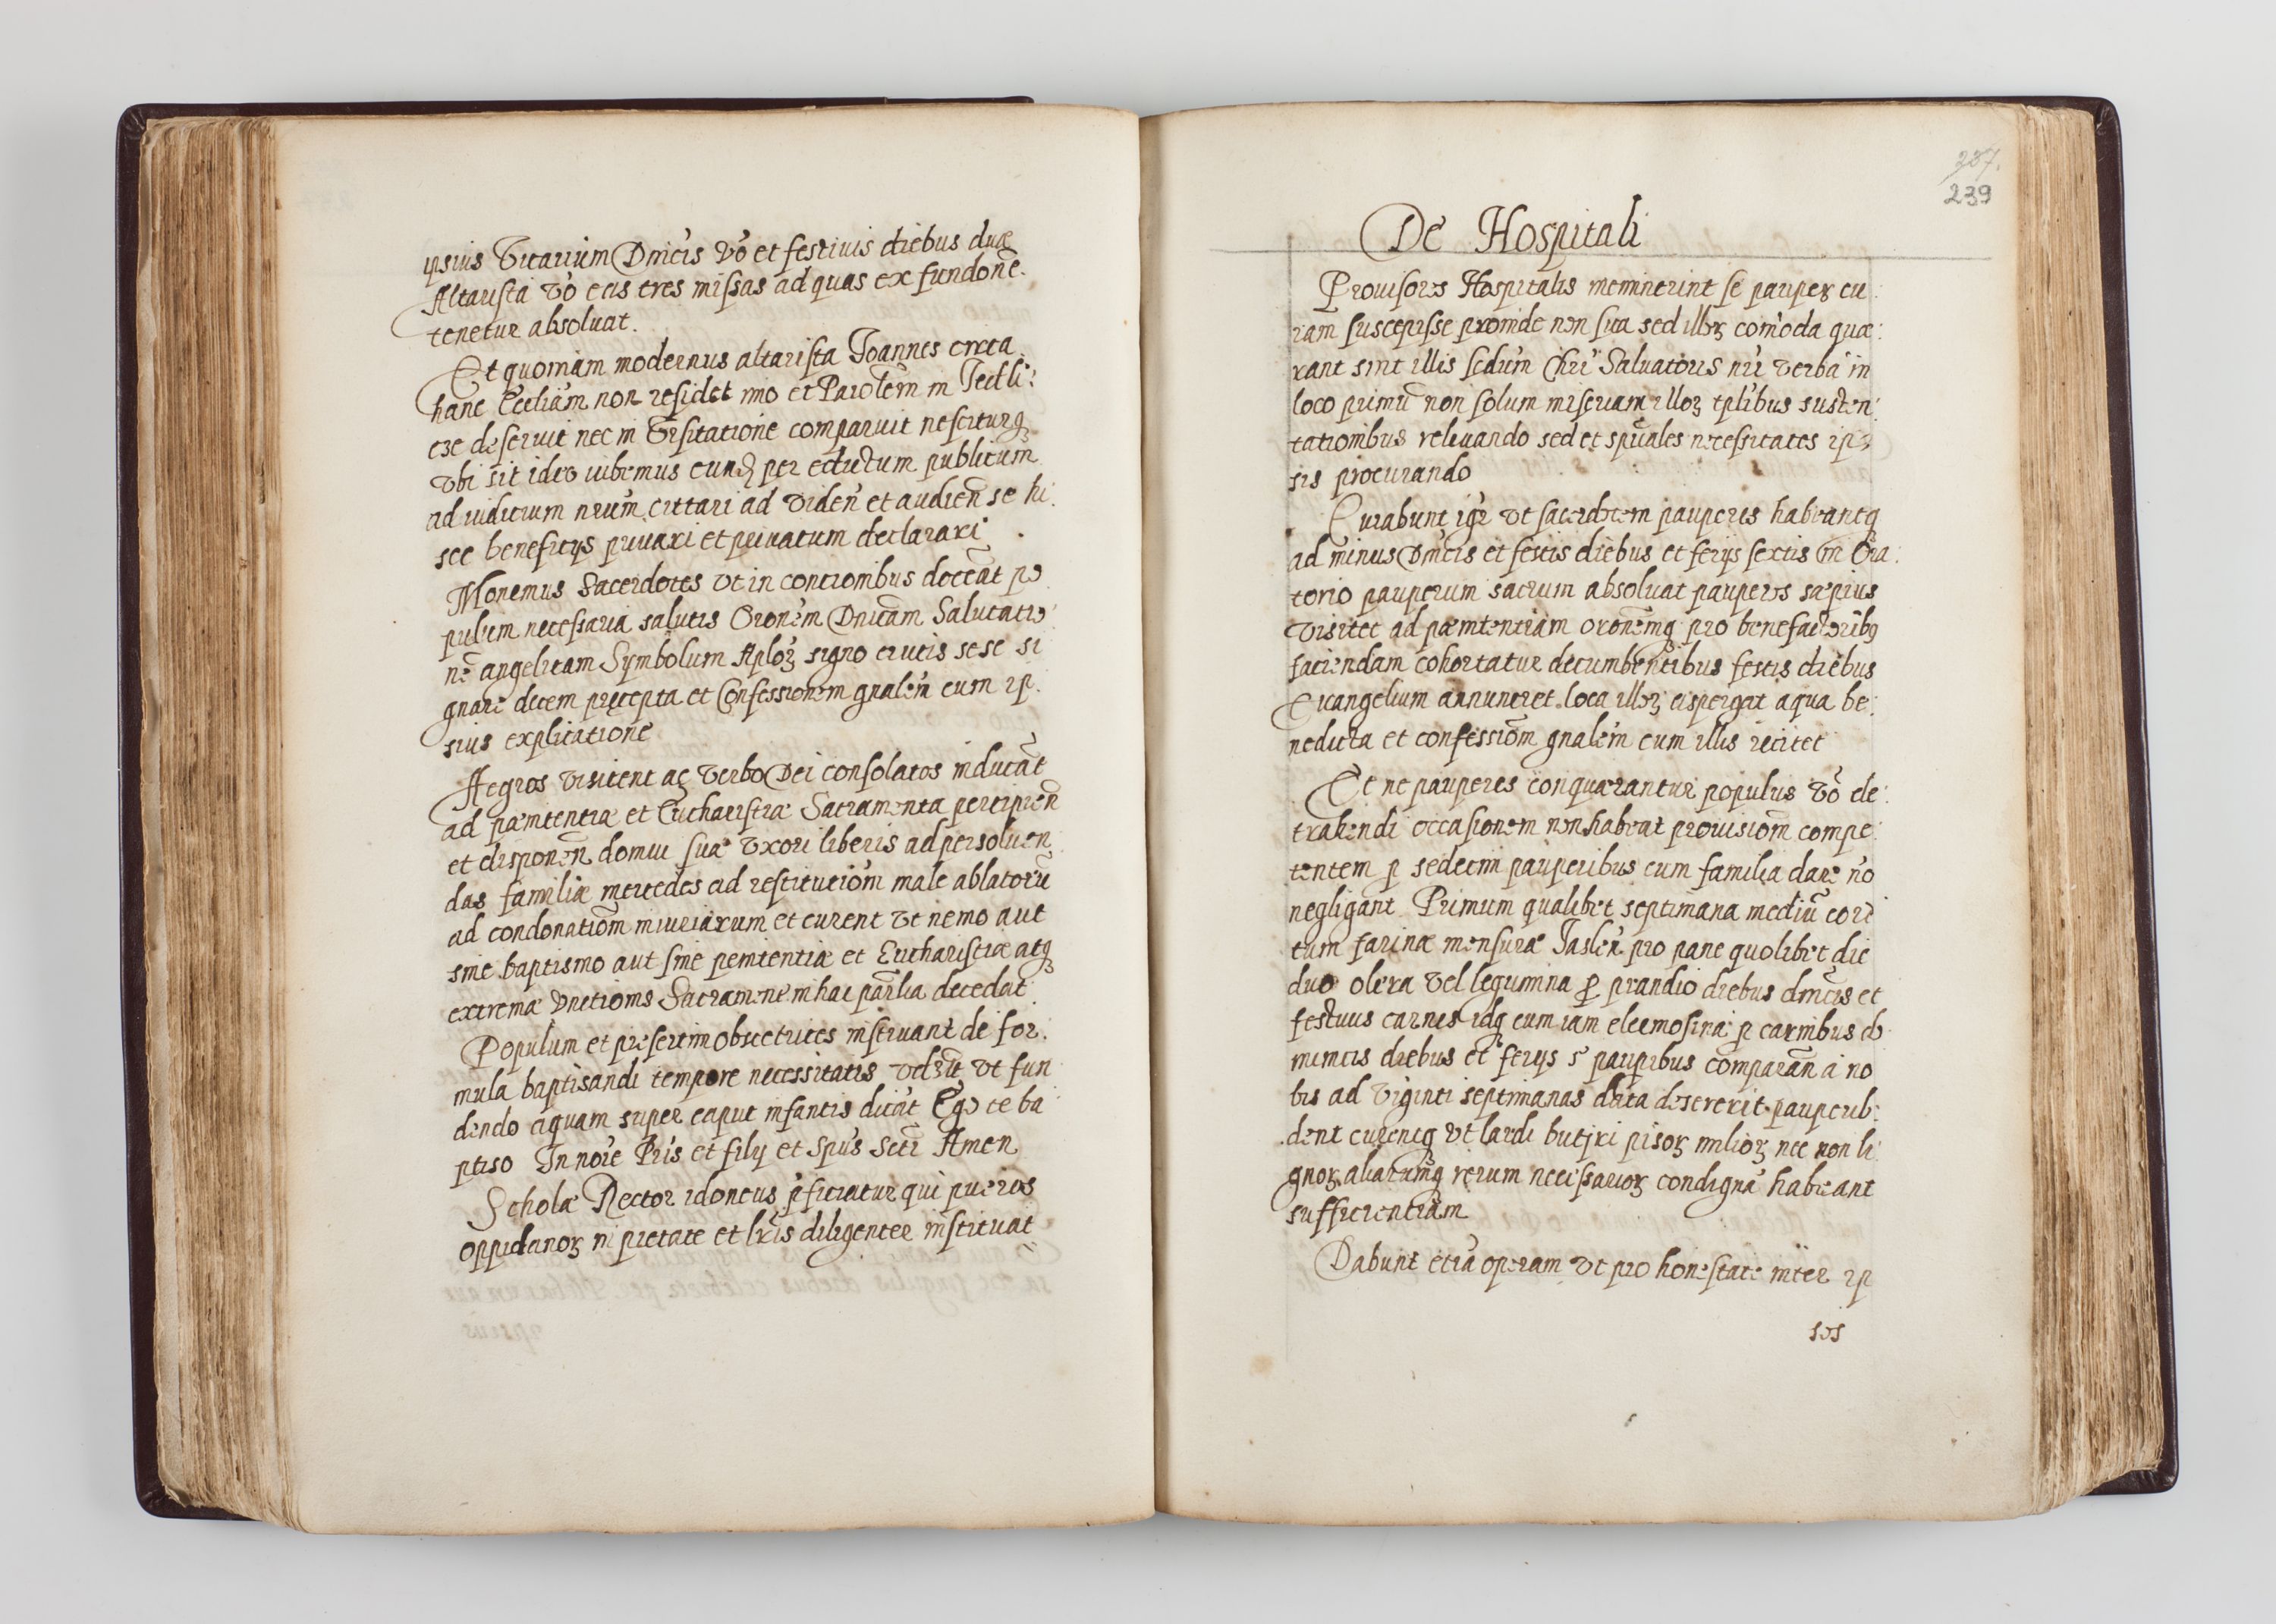 ipsius Vicarium Dnicis vo et festiuis diebus duæ
Altarista vo eas tres missas ad quas ex fundone
tenetur absoluat.
Et quoniam modernus altarista Joannes circa
hanc Eccliam non residet imo et Parolem in Jedli:
cze deseruit nec in Visitatione comparuit nesciturq
vbi sit ideo iubemus eund per edictum publicum
ad iudicium nrum cittari ad viden et audien se hi:
sce beneficijs priuari et priuatum declarari
Monemus Sacerdotes vt in concionibus doceat po
pulum necessaria salutis Oronem Dnicam Salutatio
ne angelicam Symbolum Aploꝝ signo crucis sese si
gnare decem præcepta et Confessionem gnalem cum ip.
sius explicatione
Aegros visitent ac verbo Dei consolatos inducat
ad pænitentiæ et Eucharistiæ Sacramenta percipien
et disponen domui suæ vxori liberis ad persoluen
das familiæ mercedes ad restitutiom male ablatorū
ad condonatiom iniuriarum et curent vt nemo aut
sine baptismo aut sine penitentiæ et Eucharistiæ atq
extremæ vnctionis Sacramene in hac parlia decedat
Populum et presertim obstetrices instruant de for.
mula baptisandi tempore necessitatis vt fun
dendo aquam super caput infantis dicat Ego te ba
ptiso In noie Pris et filij et Spus Scti Amen
Scholæ Rector idoneus pficiatur qui pueros
oppidanoꝝ in pietate et lris diligenter instituat
237.
239
De Hospitali
Prouisores Hospitalis meminerint se pauperꝝ cu:
ram suscepisse proinde non sua sed illoꝝ comoda quæ:
rant sint illis sedum Chri Saluatoris nri verba in
loco primū non solum miseriam illoꝝ tplibus susten:
tationibus releuando sed et spuales necessitates ip
sis procurando
Curabunt igr vt sacerdotem pauperes habeantq
ad minus Dnicis et festis diebus et ferijs sextis in Ora:
torio pauperum sacrum absoluat pauperes sæpius
visitet ad pænitentiam oronemq pro benefactoribꝯ
faciendam cohortatur decumbentibus festis diebus
Euangelium annunciet loca illoꝝ aspergat aqua be:
nedicta et confessiom gnalem cum illis recitet
Et ne pauperes conquærantur populus vo de:
trahendi occasionem non habeat prouisiom compe:
tentem p sedecim pauperibus cum familia dare no
negligant Primum qualibet septimana mediū cori
tum farinæ mensuræ Jaslen pro pane quolibet die
duo olera vel legumina p prandio diebus dnicis et
festiuus carnes idq cum iam eleemosina p carnibus do
minicis diebus et ferijs 5 paupibus comparan a no
bis ad viginti septimanas data desererit pauperib:
dent curentq vt lardi butyri pisoꝝ milioꝝ nec non li
gnoꝝ aliarumq rerum necessarioꝝ condignā habeant
sufficientiam
Dabunt etiā operam vt pro honestate inter ip
sos